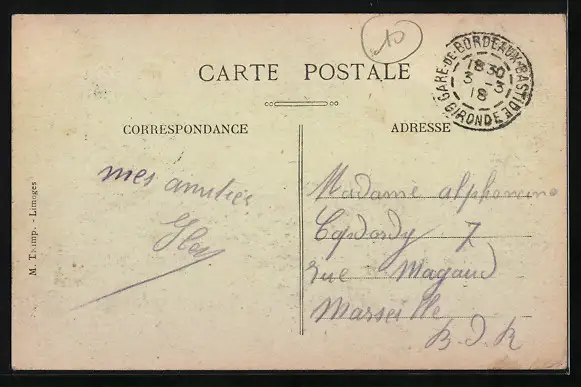 CARTE POSTALE
GARE-DE-BORDEAUX-BASTIDE
18 30
3 - 3
18
GIRONDE
CORRESPONDANCE
ADRESSE
mes amitiés
Madame alphonsine
7
rue Magaud
Marseille
B. D. R
M. Thimp. - Limoges